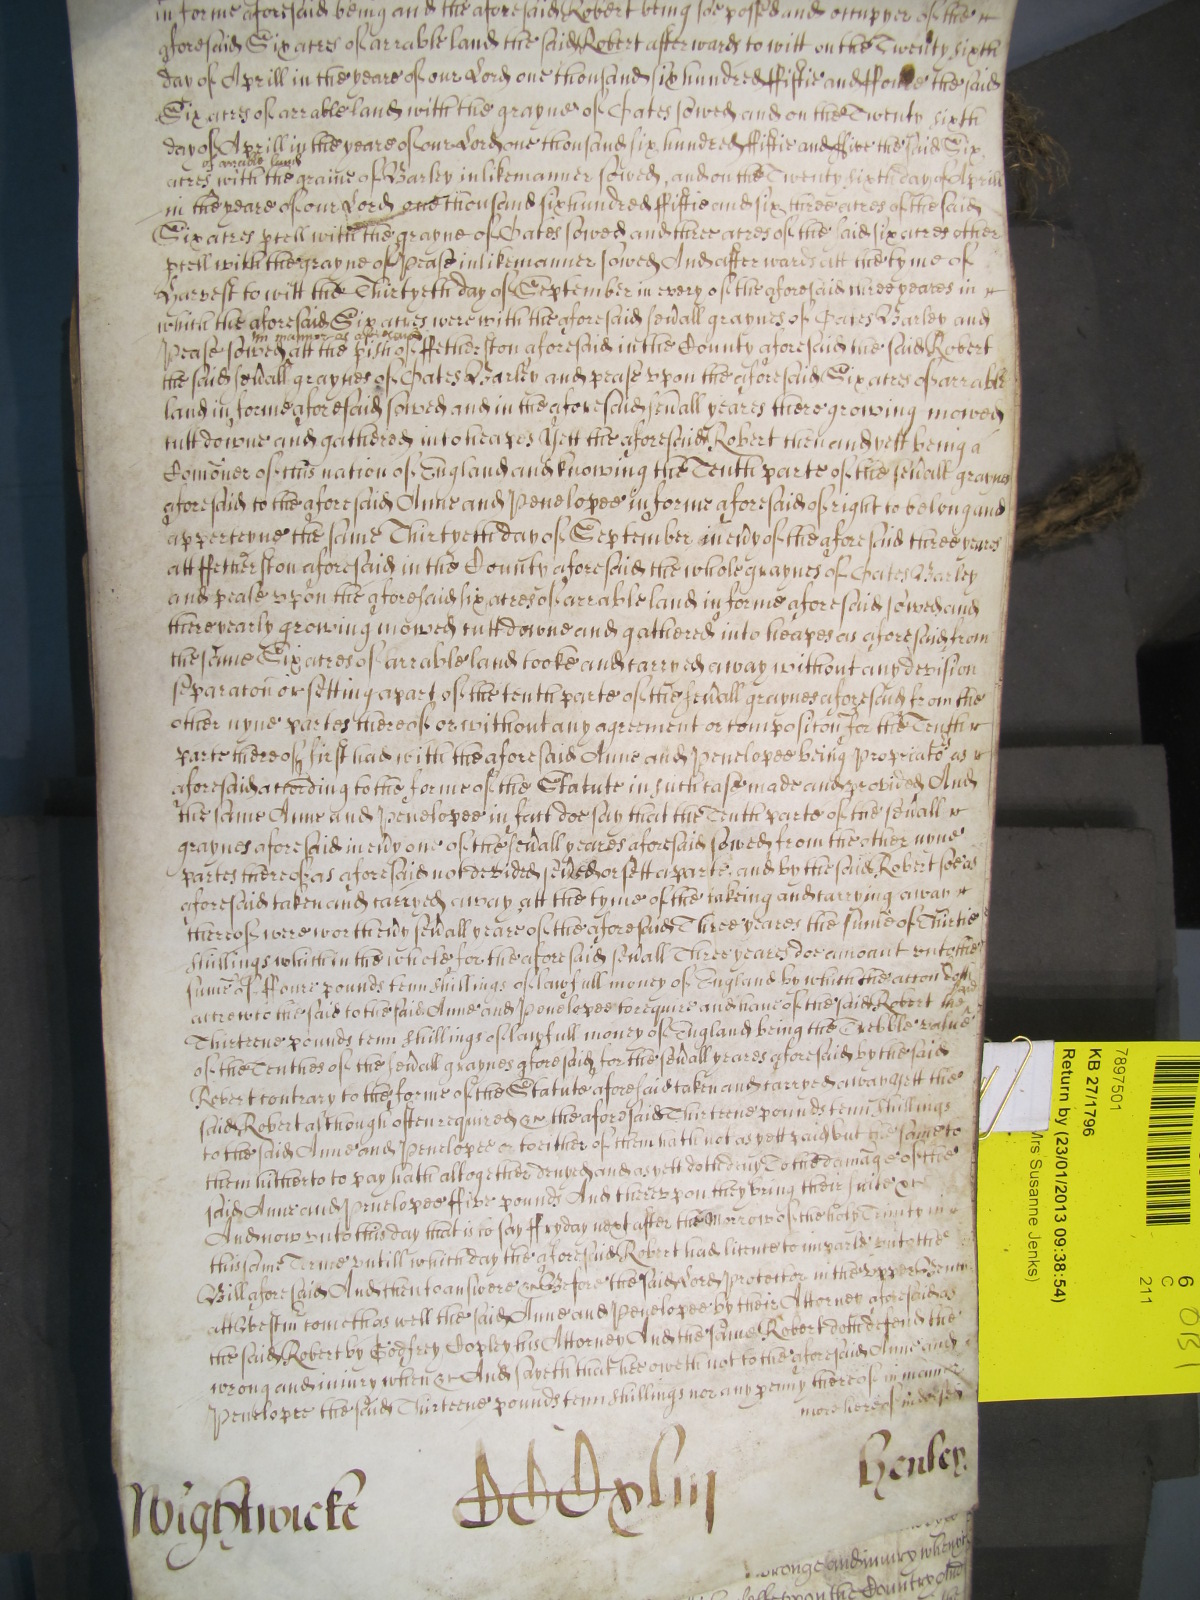 in forme aforesaid being and the aforesaid Robert being soe possessed and occupyer of the
aforesaid Six acres of arrable land the said Robert afterwards to witt on the Twenty sixth
day of Aprill in the yeare of our Lord one thousand six hundred ffiftie and ffowre the said
Six acres of arrable land with the grayne of Oates sowed and on the Twenty sixth
day of Aprill in the yeare of our Lord one thousand six hundred ffiftie and ffive the said Six
of arrable land
acres with the graine of Barley in like manner sowed, and on the Twenty sixth day of Aprill
in the yeare of our Lord one thousand six hundred ffiftie and six three acres of the said
Six acres pcell with the grayne of Oates sowed and three acres of the said six acres other
pcell with the grayne of Pease in like manner sowed And afterwards att the tyme of
Harvest to witt the Thirtyeth day of September in every of the aforesaid three yeares in
which the aforesaid Six acres were with the aforesaid sevall graynes of Oates Barley and
in manner as aforesaid
Pease sowed att the pish of ffetherston aforesaid in the County aforesaid the said Robert
the said sevall graynes of Oates Barley and pease upon the aforesaid Six acres of arrable
land in forme aforesaid sowed and in the aforesaid sevall yeares there growing mowed
cutt downe and gathered into heapes Yett the aforesaid Robert then and yett being a
Comoner of this nation of England and knowing the Tenth parte of the sevall graynes
aforesaid to the aforesaid Anne and Penelopee in forme aforesaid of right to belong and
apperteyne the same Thirtyeth day of September in evy of the aforesaid three yeares
att ffetherston aforesaid in the County aforesaid the whole graynes of Oates Barley
and pease upon the aforesaid six acres of arrable land in forme aforesaid sowed and
there yearly growing mowed cutt downe and gathered into heapes as aforesaid from
the same Six acres of arrable land tooke and carryed away without any devision
separacon or setting apart of the tenth parte of the sevall graynes aforesaid from the
other nyne partes thereof or without any agreement or composicon for the Tenth
parte thereof first had with the aforesaid Anne and Penelopee being Propriato as
aforesaid according to the forme of the Statute in such case made and provided And
the same Anne and Penelopee in fact doe say that the Tenth parte of the sevall
graynes aforesaid in evy one of the sevall yeares aforesaid sowed from the other nyne
partes thereof as aforesaid not devided sevred or sett aparte and by the said Robert soe as
aforesaid taken and carryed away att the tyme of the takeing and carrying away
thereof were worth evy sevall yeare of the aforesaid Three yeares the sume of Thirtie
shillings which in the whole for the aforesaid sevall Three yeares doe amount unto the
sume of ffoure pounds tenn shillings of lawfull money of England by which the accon doth
accrew to the said to the said Anne and Penelopee to require and have of the said Robert the
said
Thirteene pounds tenn shillings of lawfull money of England being the Trebble value
of the Tenthes of the sevall graynes aforesaid for the sevall yeares aforesaid by the said
Robert contrary to the forme of the Statute aforesaid taken and carryed away Yett the
said Robert although often required &c the aforesaid Thirteene pounds tenn shillings
to the said Anne and Penelopee or to either of them hath not as yett paid but the same to
them hitherto to pay hath altogether denyed and as yett doth deny To the damage of the
said Anne and Penelopee ffive pounds And thereupon they bring their suite &c
And now unto this day that is to say ffryday next after the Morrow of the holy Trinity in
this same Terme untill which day the aforesaid Robert had licence to imparle unto the
Bill aforesaid And then to answere &c Before the said Lord Protector in the upper Bench
att Westm cometh as well the said Anne and Penelopee by their Attorney aforesaid as
the said Robert by Godfrey Copley his Attorney And the same Robert doth defend the
wrong and injury when &c And sayeth that hee oweth not to the aforesaid Anne and
Penelopee the said Thirteene pounds tenn shillings nor any penny thereof in manner
more hereof indorsed
Wightwicke
CCCxliii
Henley
wronge and injury when &c
upon the Country And
7897501
KB 27/1796
Return by (23/01/2013 09:38:54)
Mrs Susanne Jenks)
6
C
211